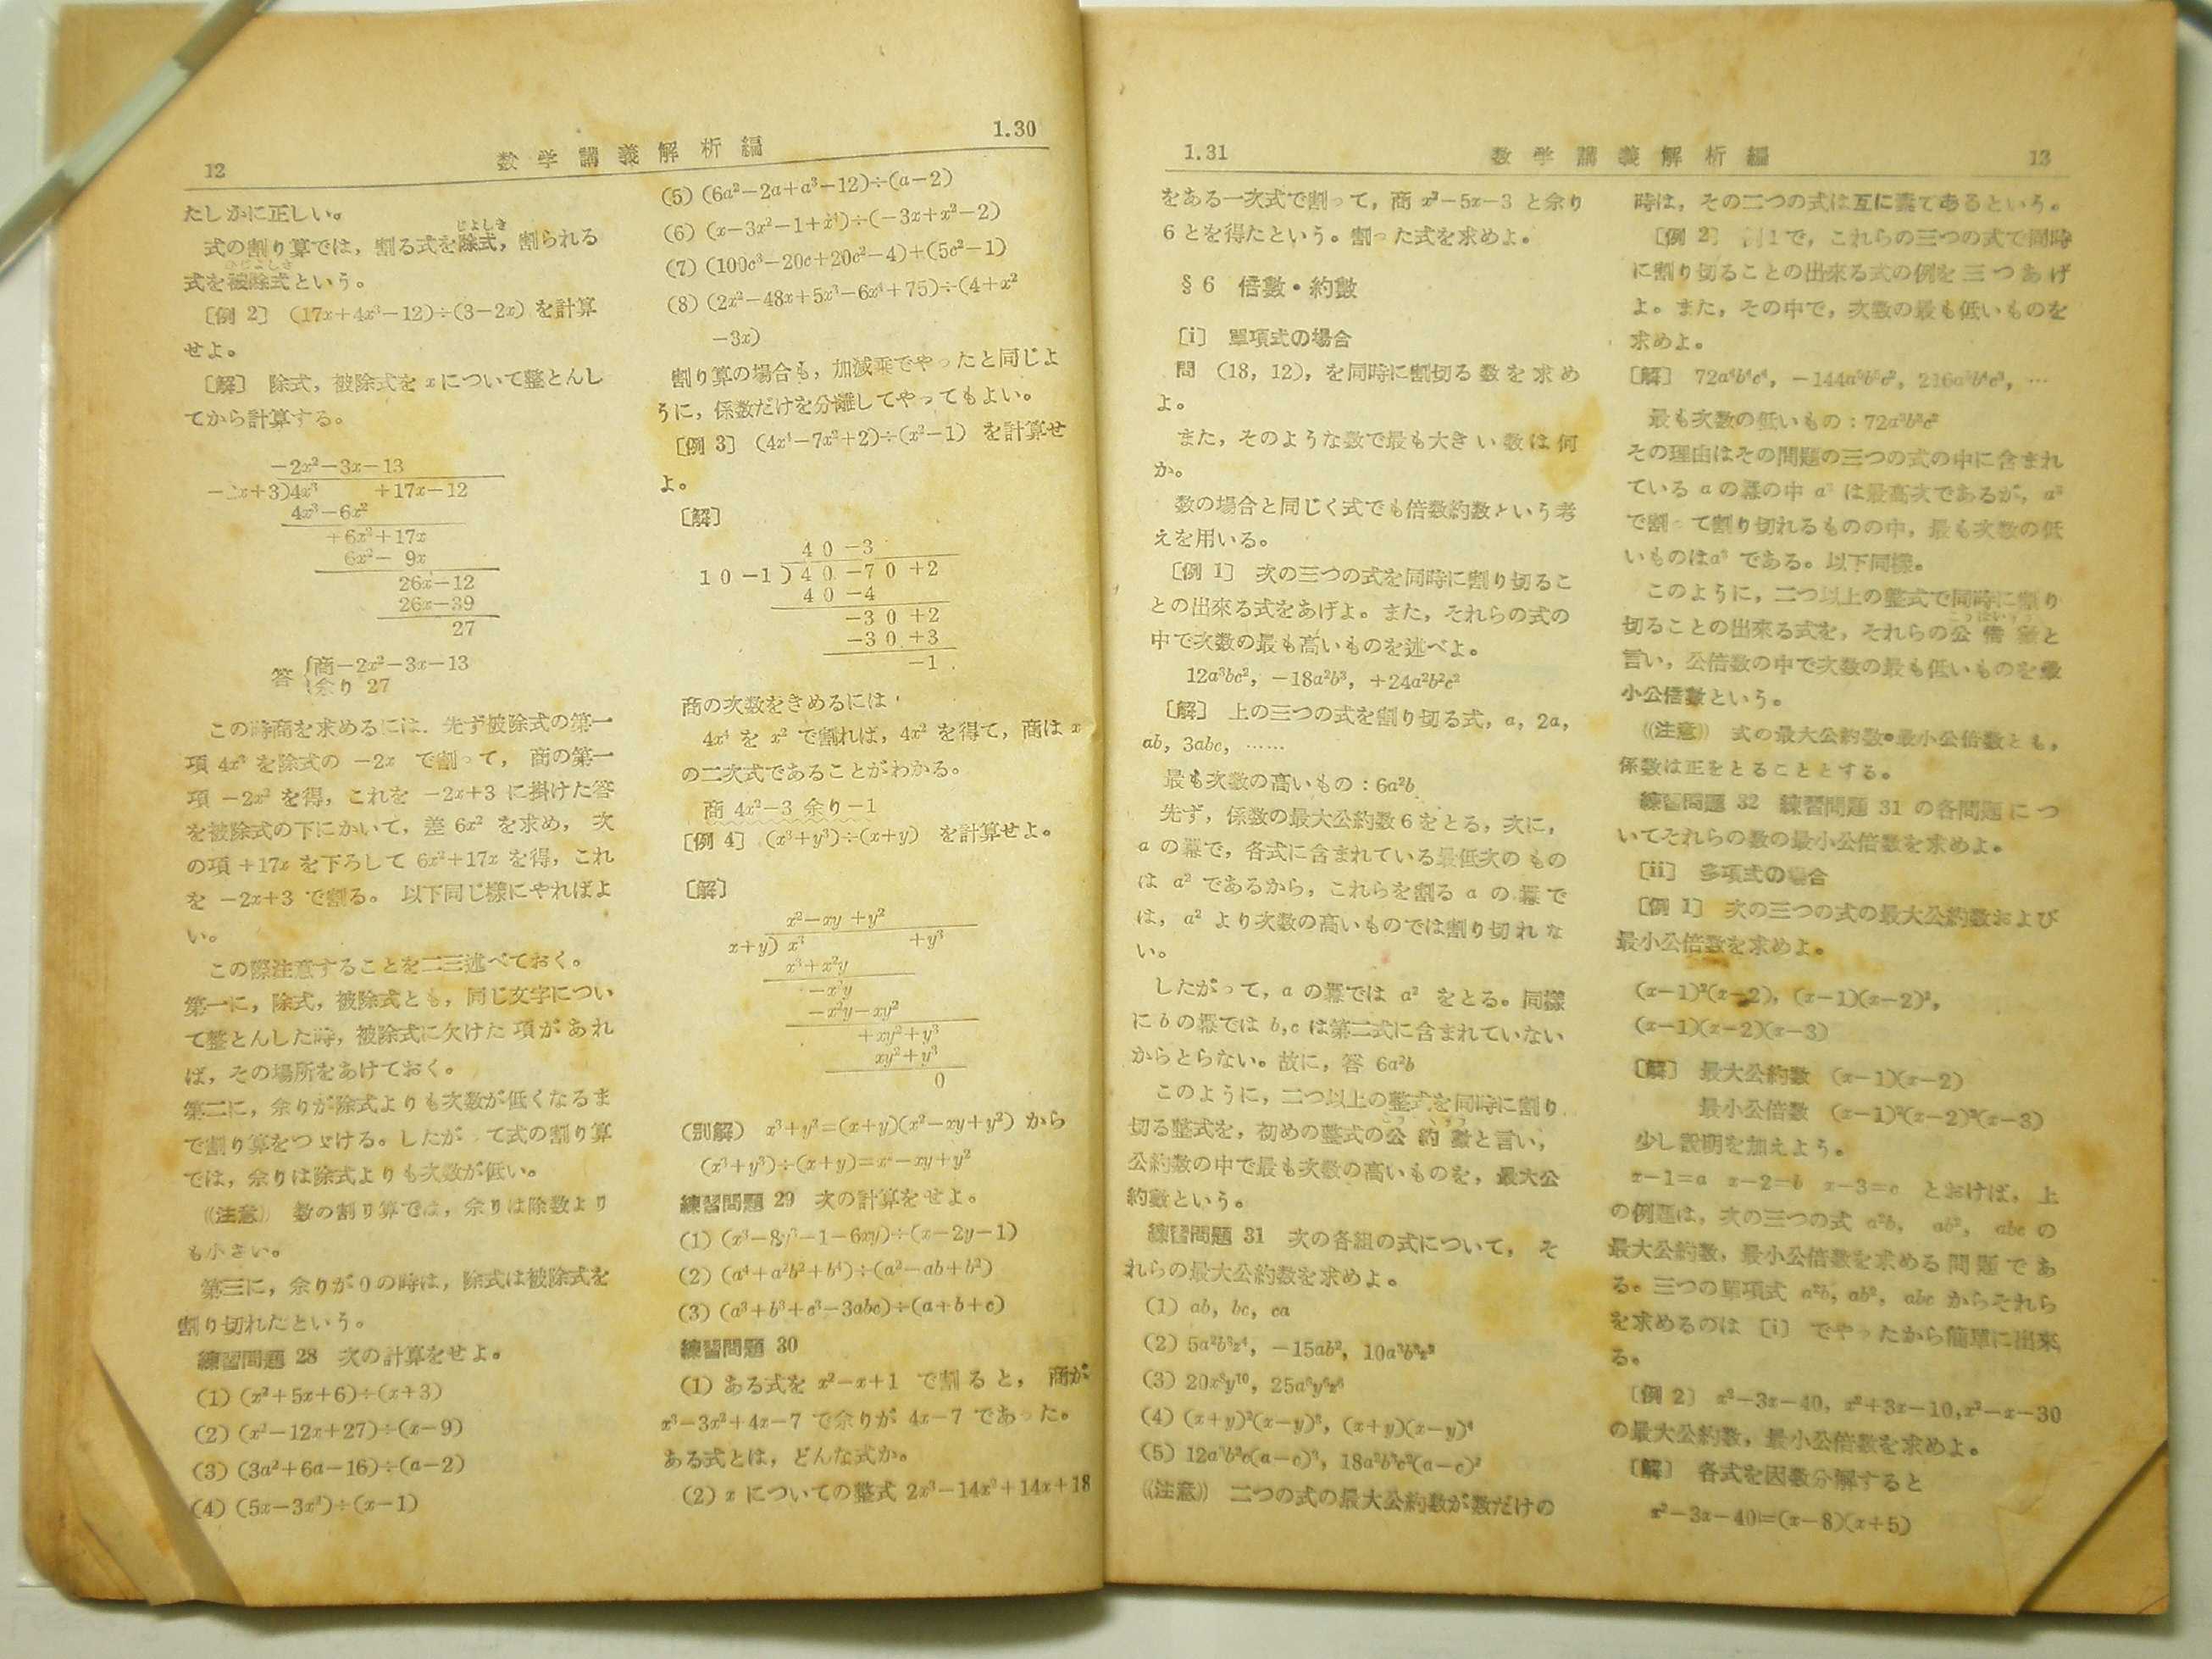 12 数学講義解析編 1.30
たしかに正しい。
式の割り算では，割る式を除式，割られる
式を被除式という。
〔例 2〕 (17x+4x³−12)÷(3−2x) を計算
せよ。
〔解〕 除式，被除式を x について整とんし
てから計算する。
−2x²−3x−13
−2x+3)4x³ +17x−12
4x³−6x²
+6x²+17x
6x²− 9x
26x−12
26x−39
27
答 {商−2x²−3x−13
余り 27
この時商を求めるには．先ず被除式の第一
項 4x³ を除式の −2x で割って， 商の第一
項 −2x² を得，これを −2x+3 に掛けた答
を被除式の下にかいて，差 6x² を求め， 次
の項 +17x を下ろして 6x²+17x を得，これ
を −2x+3 で割る。 以下同じ様にやればよ
い。
この際注意することを二三述べておく。
第一に，除式，被除式とも，同じ文字につい
て整とんした時，被除式に欠けた項があれ
ば，その場所をあけておく。
第二に，余りが除式よりも次数が低くなるま
で割り算をつゞける。したがって式の割り算
では，余りは除式よりも次数が低い。
《注意》 数の割り算では，余りは除数より
も小さい。
第三に，余りが0の時は，除式は被除式を
割り切れたという。
練習問題 28 次の計算をせよ。
(1) (x²+5x+6)÷(x+3)
(2) (x²−12x+27)÷(x−9)
(3) (3a²+6a−16)÷(a−2)
(4) (5x−3x²)÷(x−1)
(5) (6a²−2a+a³−12)÷(a−2)
(6) (x−3x²−1+x⁴)÷(−3x+x²−2)
(7) (100c³−20c+20c²−4)÷(5c²−1)
(8) (2x²−48x+5x³−6x⁴+75)÷(4+x²
−3x)
割り算の場合も，加減乗でやったと同じよ
うに，係数だけを分離してやってもよい。
〔例 3〕 (4x⁴−7x²+2)÷(x²−1) を計算せ
よ。
〔解〕
4 0 −3
1 0 −1 ) 4 0 −7 0 +2
4 0 −4
−3 0 +2
−3 0 +3
−1
商の次数をきめるには
4x⁴ を x² で割れば，4x² を得て，商は x
の二次式であることがわかる。
商 4x²−3 余り−1
〔例 4〕 (x³+y³)÷(x+y) を計算せよ。
〔解〕
x²−xy +y²
x+y) x³ +y³
x³+x²y
−x²y
−x²y−xy²
+xy²+y³
xy²+y³
0
(別解) x³+y³=(x+y)(x²−xy+y²) から
(x³+y³)÷(x+y)=x²−xy+y²
練習問題 29 次の計算をせよ。
(1) (x³−8y³−1−6xy)÷(x−2y−1)
(2) (a⁴+a²b²+b⁴)÷(a²−ab+b²)
(3) (a³+b³+c³−3abc)÷(a+b+c)
練習問題 30
(1) ある式を x²−x+1 で割ると， 商が
x³−3x²+4x−7 で余りが 4x−7 であった。
ある式とは，どんな式か。
(2) x についての整式 2x³−14x²+14x+18
1.31 数学講義解析編 13
をある一次式で割って，商 x²−5x−3 と余り
6 とを得たという。割った式を求めよ。
§6 倍数・約數
〔i〕 單項式の場合
問 (18, 12)，を同時に割切る数を求め
よ。
また，そのような数で最も大きい数は何
か。
数の場合と同じく式でも倍数約数という考
えを用いる。
〔例 1〕 次の三つの式を同時に割り切るこ
との出來る式をあげよ。また，それらの式の
中で次数の最も高いものを述べよ。
12a³bc², −18a²b³, +24a²b²c²
〔解〕 上の三つの式を割り切る式，a, 2a,
ab, 3abc, ……
最も次数の高いもの：6a²b
先ず，係数の最大公約数6をとる，次に，
a の冪で，各式に含まれている最低次のもの
は a² であるから，これらを割る a の冪で
は，a² より次数の高いものでは割り切れな
い。
したがって，a の冪では a² をとる。同様
に b の冪では b, c は第二式に含まれていない
からとらない。故に，答 6a²b
このように，二つ以上の整式を同時に割り
切る整式を，初めの整式の公約數と言い，
公約数の中で最も次数の高いものを，最大公
約數という。
練習問題 31 次の各組の式について， そ
れらの最大公約数を求めよ。
(1) ab, bc, ca
(2) 5a²b³z⁴, −15ab², 10a³b²z³
(3) 20x⁸y¹⁰,
(4) (x+y)²(x−y)³, (x+y)(x−y)⁴
(5) 12a³b²c(a−c)³, 18a²b³c²(a−c)²
《注意》 二つの式の最大公約数が数だけの
時は，その二つの式は互に素であるという。
〔例 2〕 例1で，これらの三つの式で同時
に割り切ることの出來る式の例を三つあげ
よ。また，その中で，次数の最も低いものを
求めよ。
〔解〕
最も次数の低いもの：72a³b³c²
その理由はその問題の三つの式の中に含まれ
ている a の冪の中 a³ は最高次であるが，a³
で割って割り切れるものの中，最も次数の低
いものはa³ である。以下同様。
このように，二つ以上の整式で同時に割り
切ることの出來る式を，それらの公倍數と
言い，公倍数の中で次数の最も低いものを最
小公倍數という。
《注意》 式の最大公約数・最小公倍数とも，
係数は正をとることとする。
練習問題 32 練習問題 31 の各問題につ
いてそれらの数の最小公倍数を求めよ。
〔ii〕 多項式の場合
〔例 1〕 次の三つの式の最大公約数および
最小公倍数を求めよ。
(x−1)²(x−2), (x−1)(x−2)²,
(x−1)(x−2)(x−3)
〔解〕 最大公約数 (x−1)(x−2)
最小公倍数 (x−1)²(x−2)²(x−3)
少し説明を加えよう。
x−1=a x−2=b x−3=c とおけば，上
の例題は，次の三つの式 a²b, ab², abc の
最大公約数，最小公倍数を求める問題であ
る。三つの單項式 a²b, ab², abc からそれら
を求めるのは〔i〕でやったから簡單に出來
る。
〔例 2〕 x²−3x−40, x²+3x−10, x²−x−30
の最大公約数，最小公倍数を求めよ。
〔解〕 各式を因数分解すると
x²−3x−40=(x−8)(x+5)